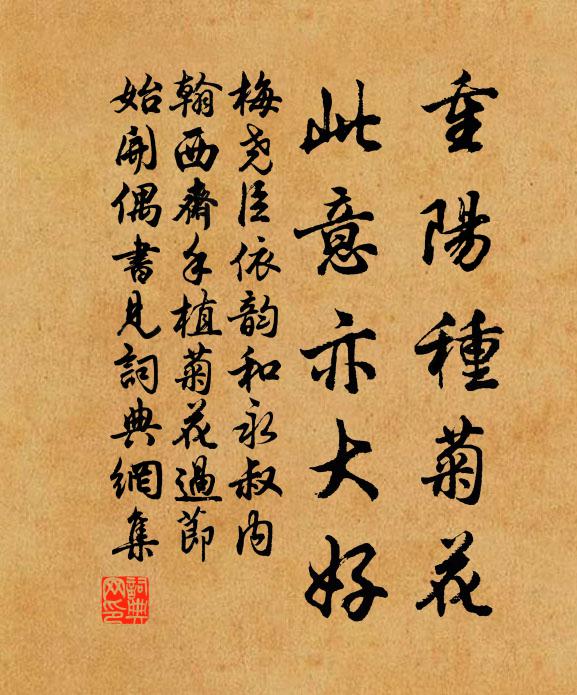 重陽種菊花
此意亦大好
梅堯臣依韵和永叔内
翰西齋手植菊花過節
始開偶書見詞典網集
詞典網印